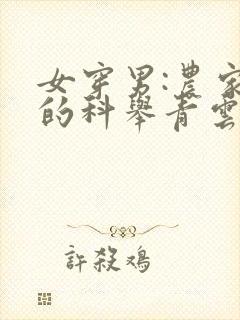 女穿男:農家
的科舉青雲
許殺鴉